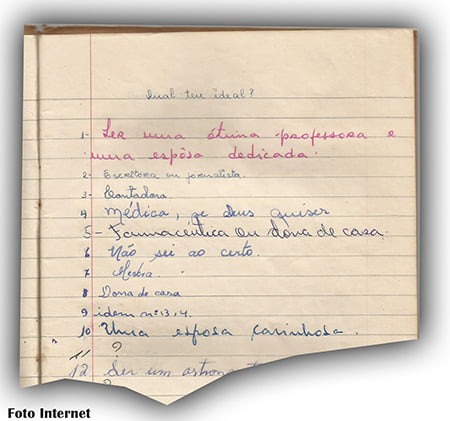 Qual teu ideal?
1- Ser uma ótima professora e
uma espôsa dedicada.
2- Escritora ou jornalista.
3- Contadora.
4 Médica, se deus quiser
5- Farmacêutica ou dona de casa.
6 Não sei ao certo.
7 Mestra.
8 Dona de casa
9 idem nº 13, 4.
10 Uma esposa carinhosa.
11 ?
12 Ser um astrona
?
Foto Internet